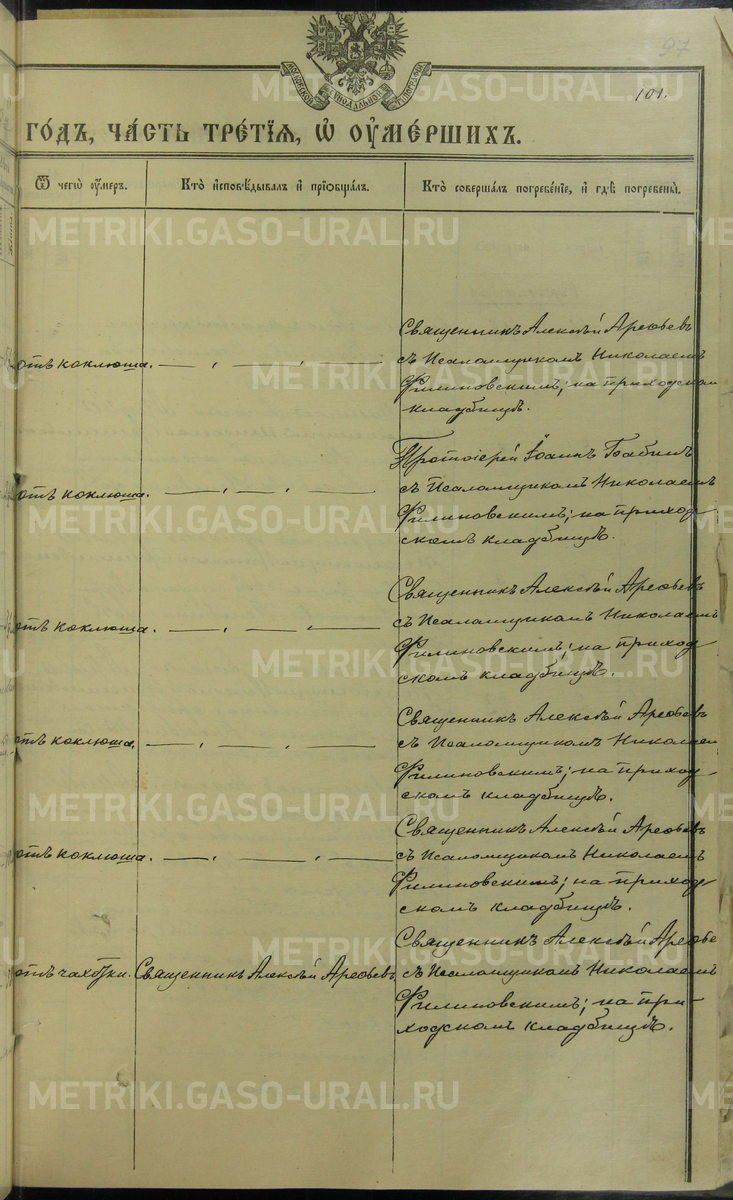 97
101.
МОСКОВСКОЙ СѴНОДАЛЬНОЙ ТѴПОГРАФІИ
ГО́ДЪ, ЧА́СТЬ ТРЕ́ТІѦ, Ѡ҆ ОУ҆МЕ́РШИХЪ.
Ѿ чегѡ̀ оу҆́меръ.
Кто̀ и҆сповѣ́дывалъ и҆ прїѡбща́лъ.
Кто̀ соверша́лъ погребе́нїе, и҆ гдѣ̀ погребены̀.
отъ коклюша.
Священникъ Алексѣй Арефьевъ
съ Псаломщикомъ Николаемъ
Филиновскимъ; на приходском
кладбищѣ.
отъ коклюша.
Протоіерей Іоаннъ
съ Псаломщикомъ Николаемъ
Филиновскимъ; на приход-
скомъ кладбищѣ.
отъ коклюша.
Священникъ Алексѣй Арефьевъ
съ Псаломщикомъ Николаемъ
Филиновскимъ; на приход-
скомъ кладбищѣ.
отъ коклюша.
Священникъ Алексѣй Арефьевъ
съ Псаломщикомъ Николаем
Филиновскимъ; на приход-
скомъ кладбищѣ.
отъ коклюша.
Священникъ Алексѣй Арефьевъ
съ Псаломщикомъ Николаемъ
Филиновскимъ; на приход-
скомъ кладбищѣ.
отъ чахотки.
Священникъ Алексѣй Арефьевъ
Священникъ Алексѣй Арефье
съ Псаломщикомъ Николаемъ
Филиновскимъ; на при-
ходскомъ кладбищѣ.
METRIKI.GASO-URAL.RU